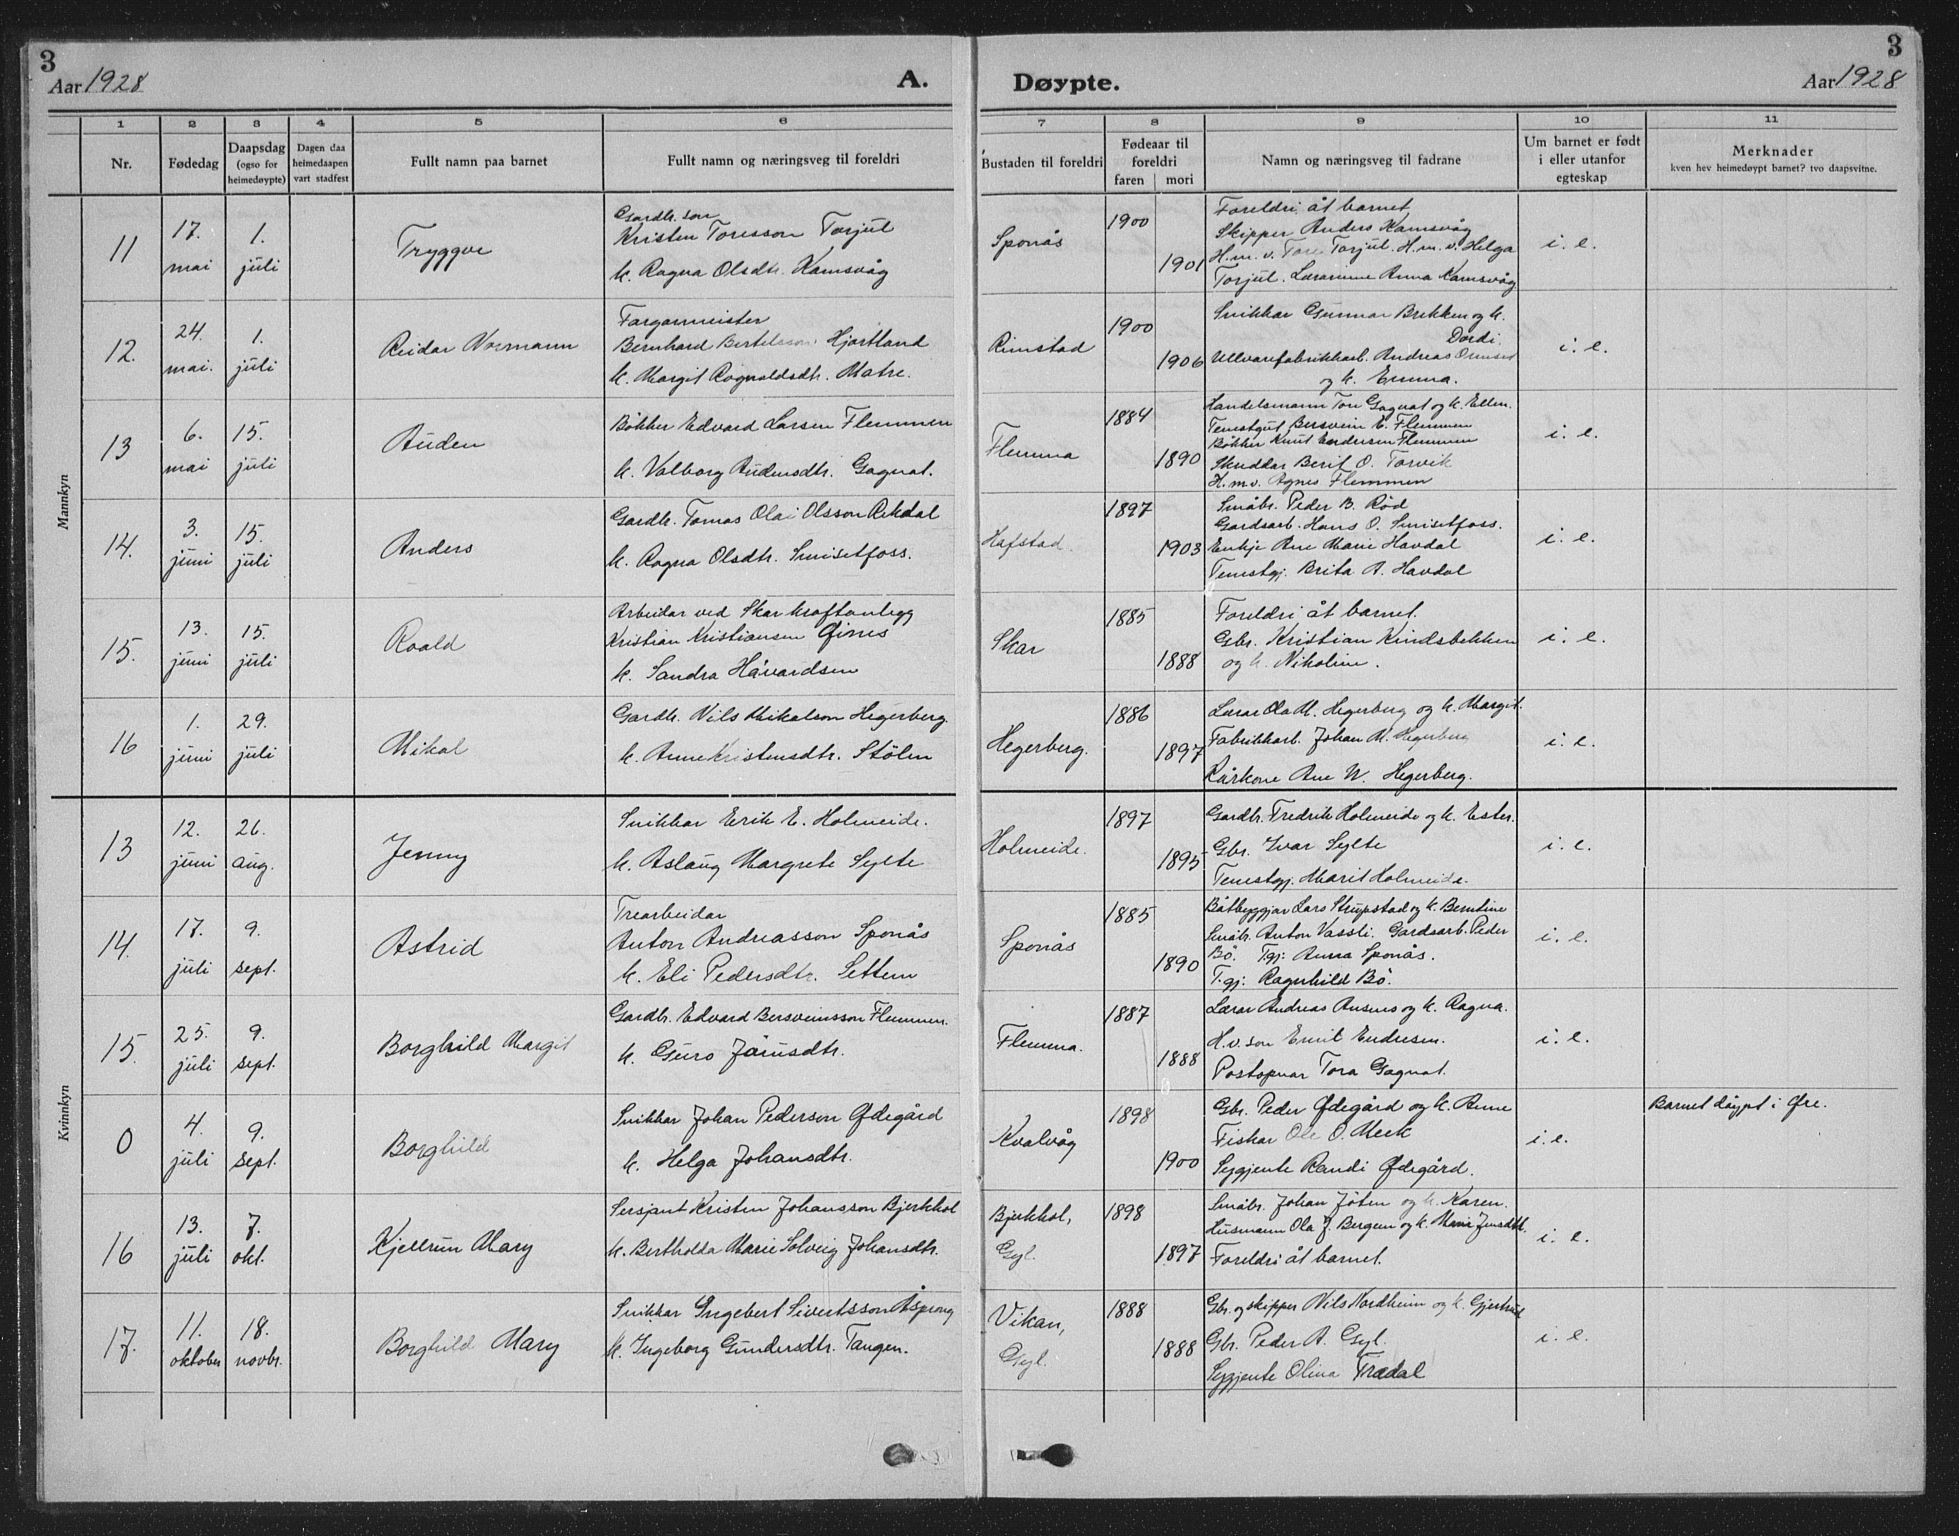 3
Aar 1928
A.
Døypte.
3
Aar 1928
1 2 3 4 5 6 7 8 9 10 11
Nr.
Fødedag
Daapsdag
(ogso for
heimedøypte)
Dagen daa
heimedaapen
vart stadfest
Fullt namn paa barnet
Fullt namn og næringsveg til foreldri
Bustaden til foreldri
Fødeaar til
foreldri
faren mori
Namn og næringsveg til fadrane
Um barnet er født
i eller utanfor
egteskap
Merknader
kven hev heimedøypt barnet? tvo daapsvitne.
Mannkyn
11
17.
mai
1.
juli
Tryggve
Gardbr. son
Kristen Toresson Torjul
k. Ragna Olsdtr. Kamsvåg
Sponås
1900
1901
Foreldri åt barnet
Skipper Anders Kamsvåg
H.m.v. Tore Torjul. H.m.v. Helga
Torjul. Anna Kamsvåg
i. e.
12.
24.
mai.
1.
juli
Reidar Normann
Fargarmeister
Bernhard Bertelsson Hjortland
k. Margit Ragnvaldsdtr. Matre.
Rimstad
1900
1906
Snikkar Gunnar Brekken og k.
Dordi.
Ullvarefabrikkarb. Andreas
og k. Emma.
i. e.
13
6.
mai
15.
juli
Auden
Bøkker Edvard Larsen Flemmen
k. Valborg Audensdtr. Gagnat.
Flemma
1884
1890
Handelsmann Tore Gagnat og k. Ellen.
Tenestgut Bersvein E. Flemmen
Bøkker Knut Endersen Flemmen
Skreddar Berit O. Torvik
H.m.v. Agnes Flemmen
i. e.
14.
3.
juni
15.
juli
Anders
Gardbr. Tomas Olai Olsson Rekdal
k. Ragna Olsdtr. Smisetfoss.
Hafstad.
1897
1903
Småbr. Peder B. Rød
Gardsarb. Hans O. Smisetfoss.
Enkje Ane Marie Havdal
Tenestgj. Brita A. Havdal
i. e.
15.
13.
juni
15.
juli
Roald
Arbeidar ved Skar kraftanlegg
Kristian Kristiansen Gimis
k. Sandra Håvardsen
Skar
1885
1888
Foreldri åt barnet.
Gbr. Kristian Kindsbekken
og k. Nikoline.
i. e.
16
1.
juni
29.
juli
Mikal
Gardbr. Nils Mikalson Hegerberg.
k. Anne Kristensdtr. Stølen
Hegerberg.
1886
1897
Lærar Ola M. Hegerberg og k. Margit.
Fabrikkarb. Johan M. Hegerberg
Kårkone Ane N. Hegerberg.
i. e.
Kvinnkyn
13
12.
juni
26.
aug.
Jenny
Snikkar Erik E. Holmeide.
k. Aslaug Margrete Sylte
Holmeide.
1897
1895
Gardbr. Fredrik Holmeide og k. Ester.
Gbr. Ivar Sylte
Tenestgj. Marit Holmeide.
i. e.
14.
17.
juli
9.
sept.
Astrid
Trearbeidar
Anton Andreasson Sponås
k. Eli Pedersdtr. Settem
Sponås
1885
1890
Båtbyggjar Lars Strupstad og k. Berntine
Småbr. Anton Vassli. Gardsarb. Peder
Bø. T.gj. Anna Sponås.
T.gj. Ragnhild Bø.
i. e.
15.
25.
juli
9.
sept.
Borghild Margit
Gardbr. Edvard Bersveinsson Flemmen.
k. Guro Jònsdtr.
Flemma.
1887
1888
Lærar Andreas Ansnes og k. Ragna.
H.v. son Emil Endresen.
Postopnar Tora Gagnat.
i. e.
0
4.
juli
9.
sept.
Borghild
Snikkar Johan Pederson Ødegård
k. Helga Johansdtr.
Kvalvåg
1898
1900
Gbr. Peder Ødegård og k. Anne
Fiskar Ole O. Meek
Sygjente Randi Ødegård.
i. e.
Barnet døypt i Øre.
16
13.
juli
7.
okt.
Kjellrun Mary
Sersjant Kristen Johansson Bjerkhol
k. Bertholda Marie Solveig Johansdtr.
Bjerkhol,
Gyl.
1898
1897
Småbr. Johan Jøten og k. Karen.
Husmann Ola J. Bergem og k. Marie Jensdtr.
Foreldri åt barnet.
i. e.
17.
11.
oktober
18.
novbr.
Borghild Mary
Snikkar Engebert Sivertsson Åsprong
k. Ingeborg Gundersdtr. Tangen.
Vikan,
Gyl.
1888
1888
Gbr. og skipper Nils Nordheim og k. Gjertrud
Gbr. Peder A. Gyl.
Sygjente Olina Trædal
i. e.